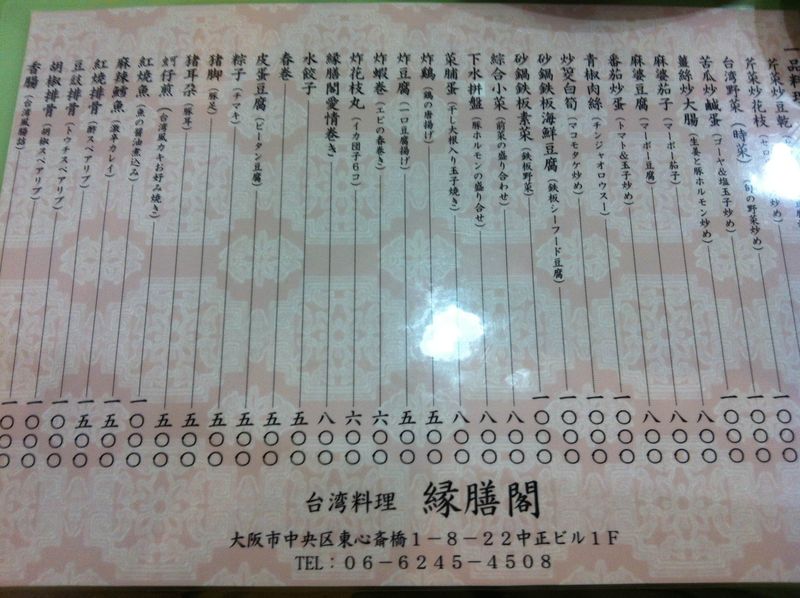 一品料
芹菜炒豆乾
芹菜炒花枝
台湾野菜(時菜)(旬の野菜炒め)
苦瓜炒鹹蛋(ゴーヤ&塩玉子炒め)
薑絲炒大腸(生姜と豚ホルモン炒め)
麻婆茄子(マーボー茄子)
麻婆豆腐(マーボー豆腐)
番茄炒蛋(トマト&玉子炒め)
青椒肉絲(チンジャオロウスー)
炒筊白筍(マコモタケ炒め)
砂鍋鉄板海鮮豆腐(鉄板シーフード豆腐)
砂鍋鉄板素菜(鉄板野菜)
綜合小菜(前菜の盛り合わせ)
下水拼盤(豚ホルモンの盛り合せ)
菜脯蛋(干し大根入り玉子焼き)
炸鶏(鶏の唐揚げ)
炸豆腐(一口豆腐揚げ)
炸蝦巻(エビの春巻き)
炸花枝丸(イカ団子6コ)
縁膳閣愛情巻き
水餃子
春巻
皮蛋豆腐(ピータン豆腐)
粽子(チマキ)
猪脚(豚足)
猪耳朶(豚耳)
蚵仔煎(台湾風カキお好み焼き)
紅燒魚(魚の醤油煮込み)
麻辣鱈魚(激辛カレイ)
紅燒排骨(酢スペアリブ)
豆豉排骨(トウチスペアリブ)
胡椒排骨(胡椒スペアリブ)
香腸(台湾風腸詰)
一〇〇〇
一〇〇〇
一〇〇〇
八〇〇
八〇〇
八〇〇
一〇〇〇
一〇〇〇
一〇〇〇
一〇〇〇
八〇〇
八〇〇
八〇〇
五〇〇
五〇〇
六〇〇
六〇〇
八〇〇
五〇〇
五〇〇
五〇〇
五〇〇
五〇〇
五〇〇
一〇〇〇
五〇〇
五〇〇
一〇〇〇
一〇〇〇
一〇〇〇
台湾料理 縁膳閣
大阪市中央区東心斎橋1-8-22中正ビル1F
TEL:06-6245-4508